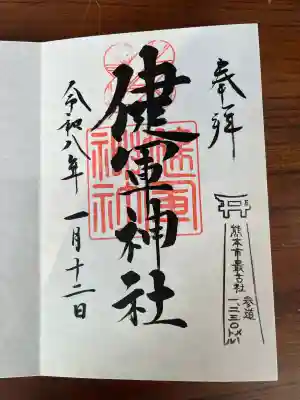 奉拝
熊本市最古社
参道
一二三〇メートル
健軍神社
健軍神社
令和八年 一月十二日